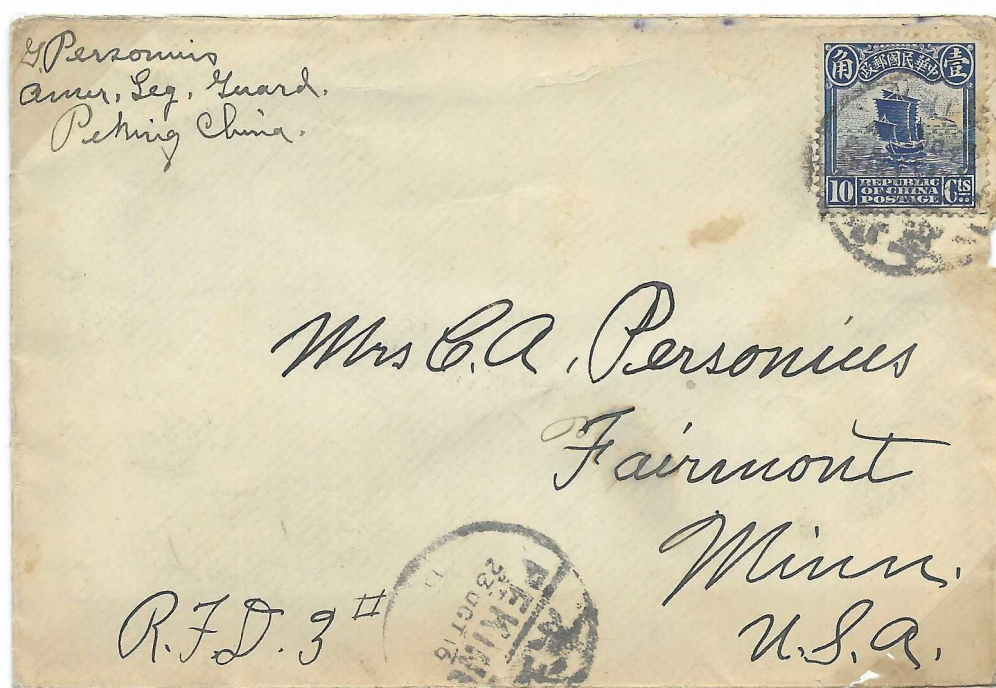 G Personius
Amer. Leg. Guard.
Peking China.
角 政郵國民華中 壹
10 REPUBLIC OF CHINA POSTAGE Cts
Mrs C. A. Personius
Fairmont
Minn.
U.S.A.
R.F.D. 3 #
PEKING
23 OCT 16